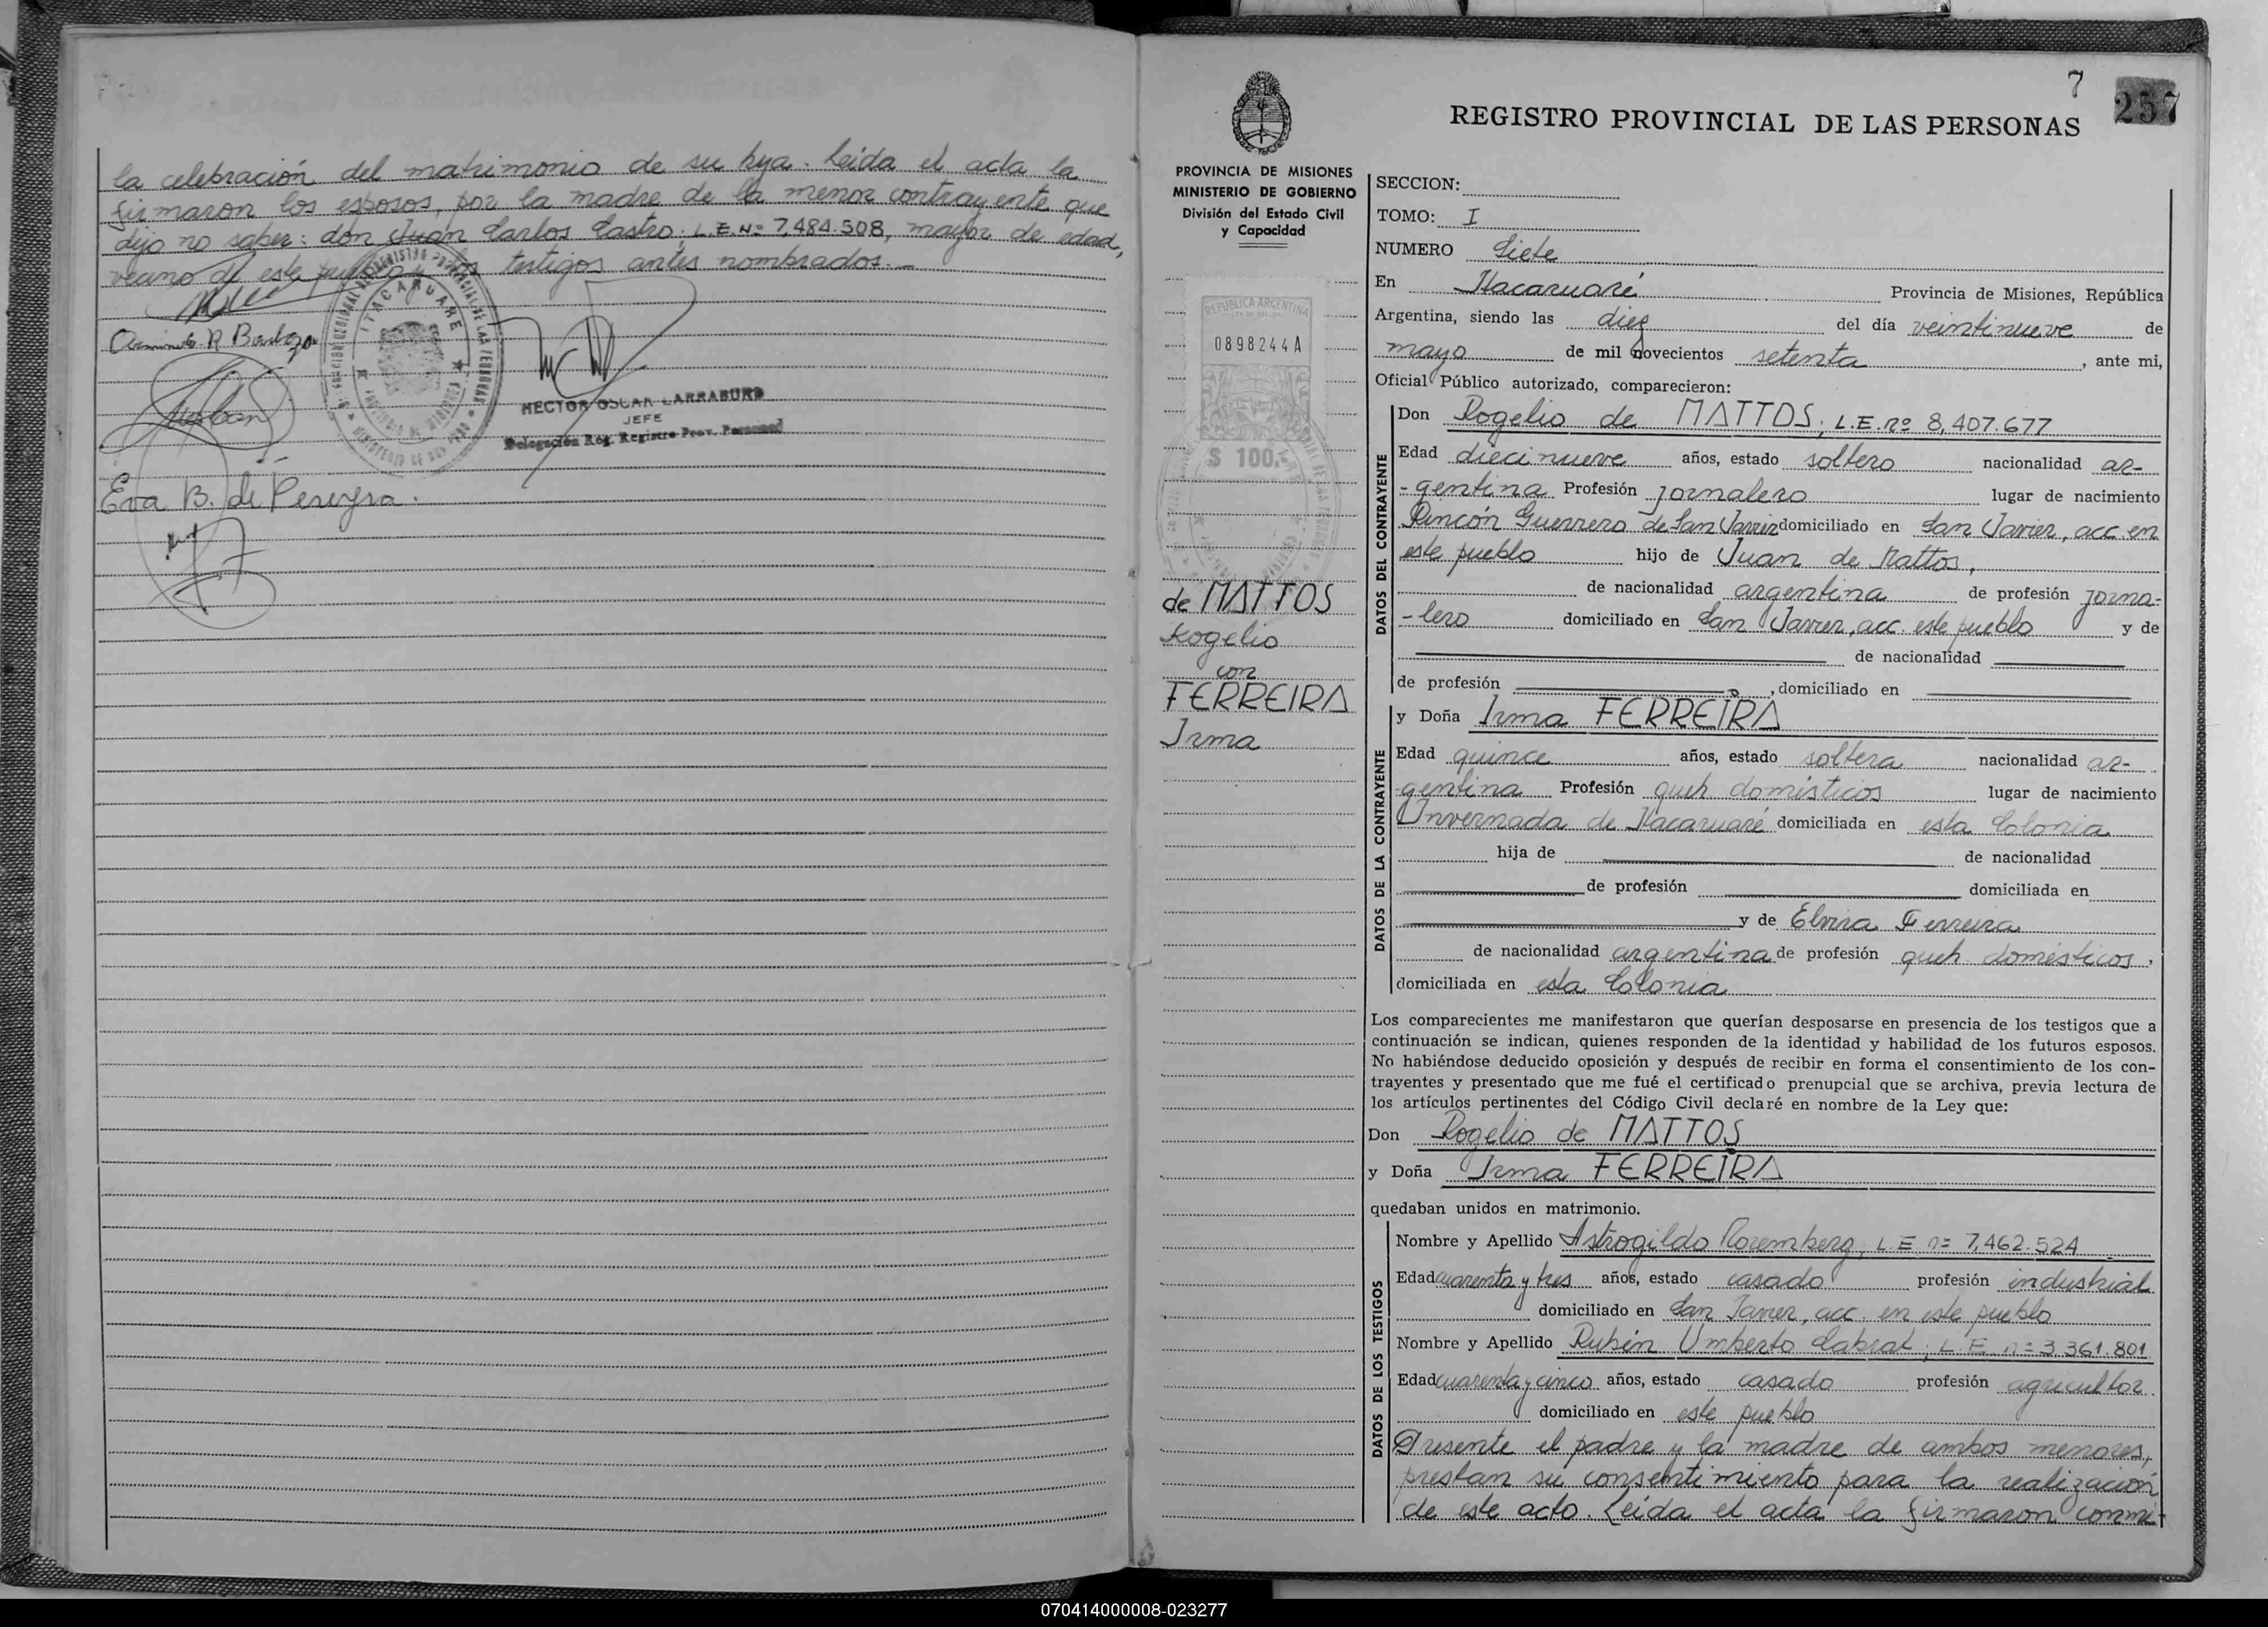 la celebración del matrimonio de su hija. Leída el acta la
firmaron los esposos, por la madre de la menor contrayente que
dijo no saber: don Juan Carlos Castro, L.E. Nº 7,484.508, mayor de edad,
vecino de este pueblo y los testigos antes nombrados.—
R. Barboza
ITACARUARE
HECTOR OSCAR LARRABURU
JEFE
Delegación Reg. Registro Prov. Personas
Eva B. de Pereyra.
7
257
REGISTRO PROVINCIAL DE LAS PERSONAS
PROVINCIA DE MISIONES
MINISTERIO DE GOBIERNO
División del Estado Civil
y Capacidad
REPUBLICA ARGENTINA
0898244A
$ 100.-
de MATTOS
Rogelio
con
FERREIRA
Irma
SECCION:
TOMO: I
NUMERO Siete
En Itacaruaré Provincia de Misiones, República
Argentina, siendo las diez del día veintinueve de
mayo de mil novecientos setenta, ante mi,
Oficial Público autorizado, comparecieron:
DATOS DEL CONTRAYENTE
Don Rogelio de MATTOS; L.E. nº 8,407.677
Edad diecinueve años, estado soltero nacionalidad ar-
-gentina Profesión jornalero lugar de nacimiento
Rincón Guerrero de San Javier domiciliado en San Javier, acc. en
este pueblo hijo de Juan de Mattos,
de nacionalidad argentina de profesión jorna-
-lero domiciliado en San Javier, acc. este pueblo y de
de nacionalidad
de profesión , domiciliado en
DATOS DE LA CONTRAYENTE
y Doña Irma FERREIRA
Edad quince años, estado soltera nacionalidad ar-
-gentina Profesión queh domésticos lugar de nacimiento
Invernada de Itacaruaré domiciliada en esta Colonia
hija de de nacionalidad
de profesión domiciliada en
y de Elvira Ferreira
de nacionalidad argentina de profesión queh domésticos,
domiciliada en esta Colonia
Los comparecientes me manifestaron que querían desposarse en presencia de los testigos que a
continuación se indican, quienes responden de la identidad y habilidad de los futuros esposos.
No habiéndose deducido oposición y después de recibir en forma el consentimiento de los con-
trayentes y presentado que me fué el certificado prenupcial que se archiva, previa lectura de
los artículos pertinentes del Código Civil declaré en nombre de la Ley que:
Don Rogelio de MATTOS
y Doña Irma FERREIRA
quedaban unidos en matrimonio.
DATOS DE LOS TESTIGOS
Nombre y Apellido Astrogildo Roremberg, L.E nº 7,462.524
Edad cuarenta y tres años, estado casado profesión industrial
domiciliado en San Javier, acc. en este pueblo
Nombre y Apellido Rubén Umberto Cabral, L.E. nº 3.361.801
Edad cuarenta y cinco años, estado casado profesión agricultor
domiciliado en este pueblo
Presente el padre y la madre de ambos menores,
prestan su consentimiento para la realización
de este acto. Leída el acta la firmaron conmi-
070414000008-023277